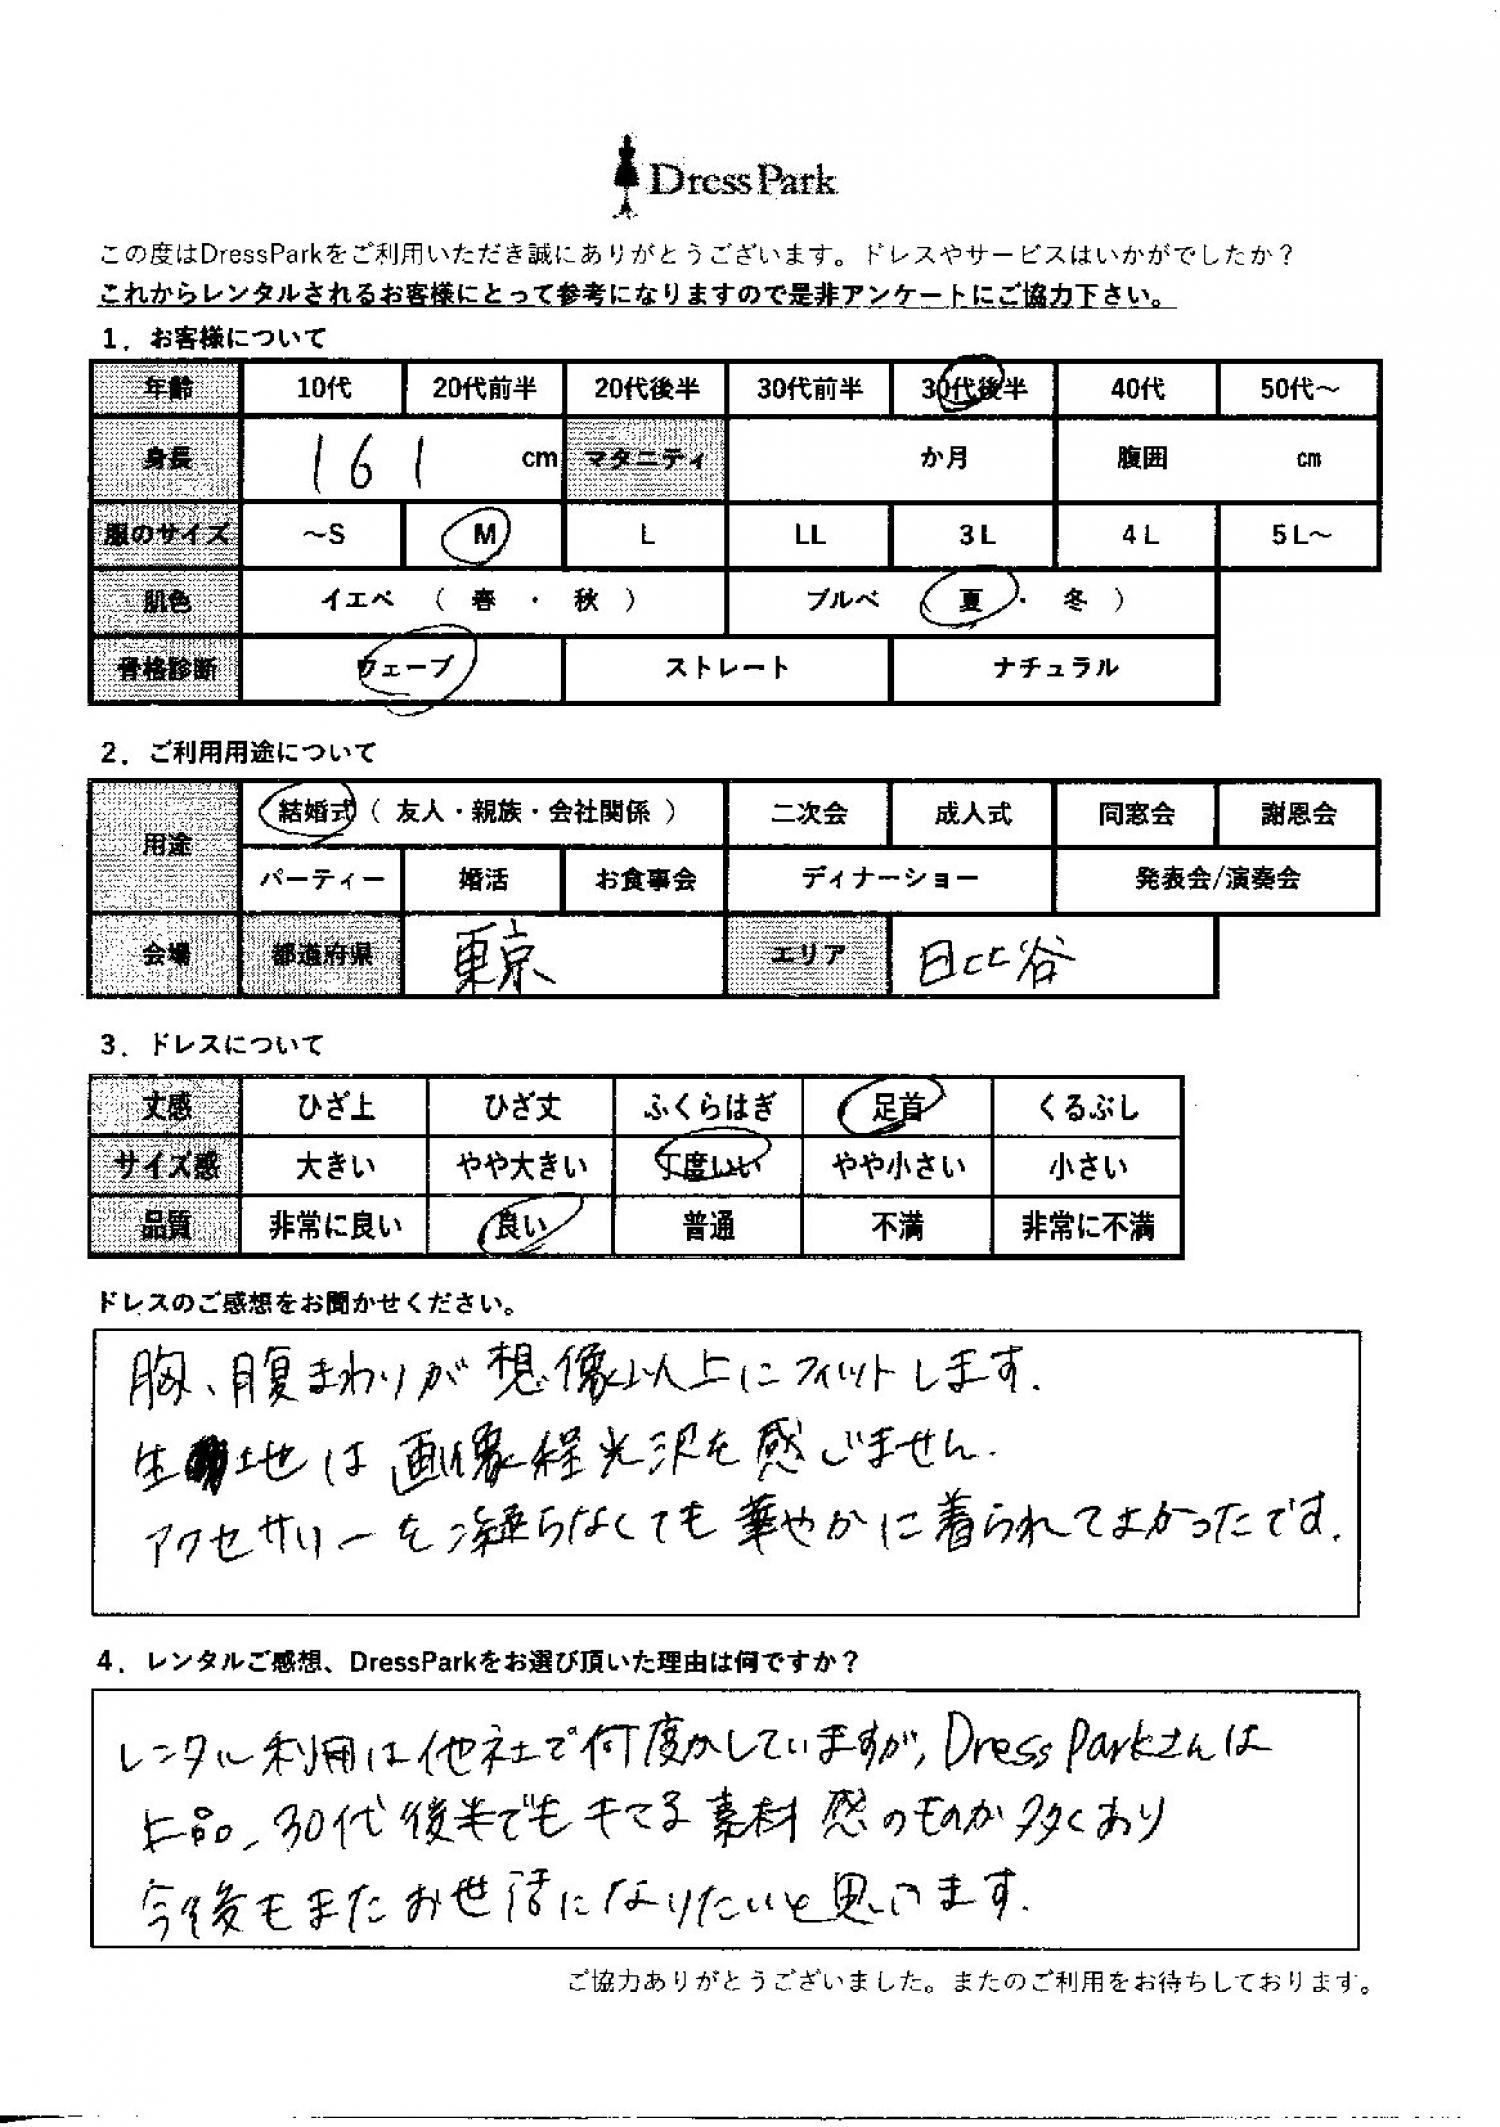 DressPark
この度はDressParkをご利用いただき誠にありがとうございます。ドレスやサービスはいかがでしたか？
これからレンタルされるお客様にとって参考になりますので是非アンケートにご協力下さい。
1．お客様について
年齢 10代 20代前半 20代後半 30代前半 30代後半 40代 50代～
身長 161 cm マタニティ か月 腹囲 cm
服のサイズ ～S M L LL 3L 4L 5L～
肌色 イエベ （ 春 ・ 秋 ） ブルベ （ 夏 ・ 冬 ）
骨格診断 ウェーブ ストレート ナチュラル
2．ご利用用途について
用途 結婚式（ 友人・親族・会社関係 ） 二次会 成人式 同窓会 謝恩会
パーティー 婚活 お食事会 ディナーショー 発表会/演奏会
会場 都道府県 東京 エリア 日比谷
3．ドレスについて
丈感 ひざ上 ひざ丈 ふくらはぎ 足首 くるぶし
サイズ感 大きい やや大きい 丁度いい やや小さい 小さい
品質 非常に良い 良い 普通 不満 非常に不満
ドレスのご感想をお聞かせください。
胸、腹まわりが想像以上にフィットします.
生地は画像程光沢を感じません.
アクセサリーを凝らなくても華やかに着られてよかったです.
4．レンタルご感想、DressParkをお選び頂いた理由は何ですか？
レンタル利用は他社で何度かしていますが, Dress Parkさんは
上品、30代後半でもキてる素材感のものが多くあり
今後もまたお世話になりたいと思います.
ご協力ありがとうございました。またのご利用をお待ちしております。